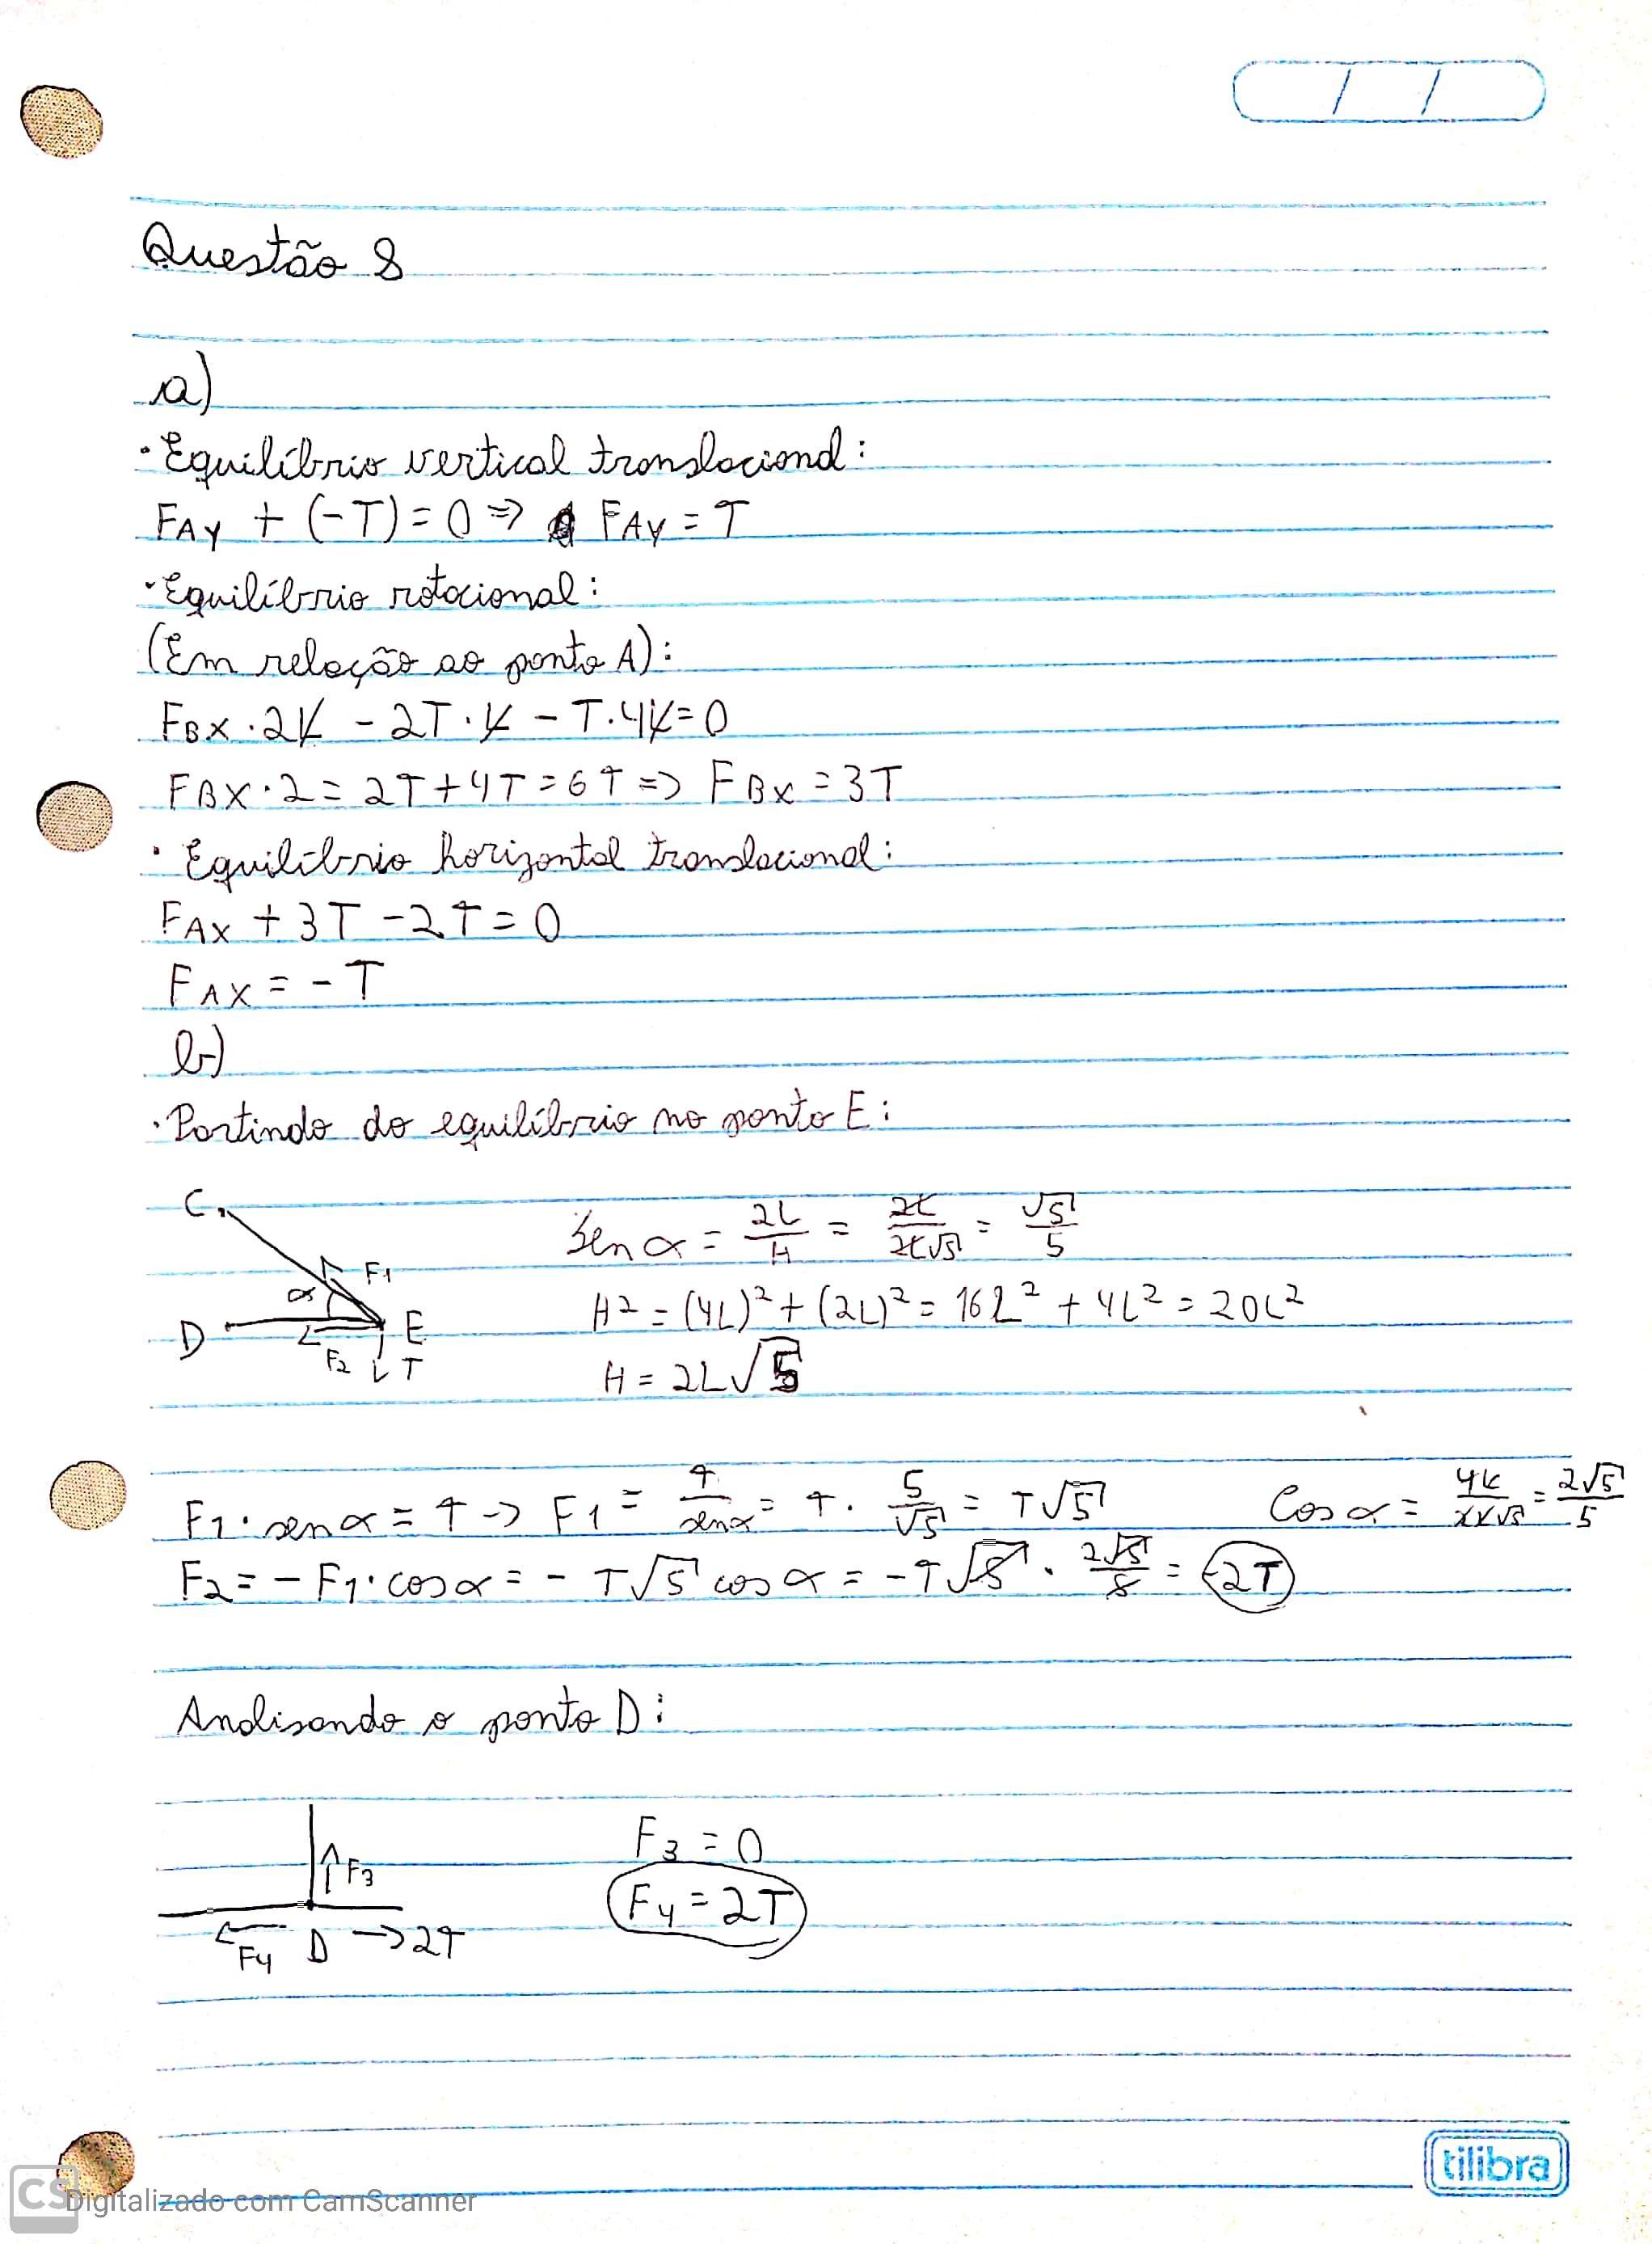 Questão 8
a)
• Equilíbrio vertical translacional:
FAy + (-T) = 0 => FAy = T
• Equilíbrio rotacional:
(Em relação ao ponto A):
FBX · 2L - 2T · L - T · 4L = 0
FBX · 2 = 2T + 4T = 6T => FBX = 3T
• Equilíbrio horizontal translacional:
FAX + 3T - 2T = 0
FAX = - T
b)
• Partindo do equilíbrio no ponto E:
C
F1
α
D
E
F2
T
sen α = 2L/H = 2L/2L√5 = √5/5
H² = (4L)² + (2L)² = 16L² + 4L² = 20L²
H = 2L√5
F1 · sen α = T -> F1 = T/sen α = T · 5/√5 = T√5
Cos α = 4L/2L√5 = 2√5/5
F2 = - F1 · cos α = - T√5 cos α = - T√5 · 2√5/5 = -2T
Analisando o ponto D:
F3
F4 D -> 2T
F3 = 0
F4 = 2T
tilibra
CS Digitalizado com CamScanner